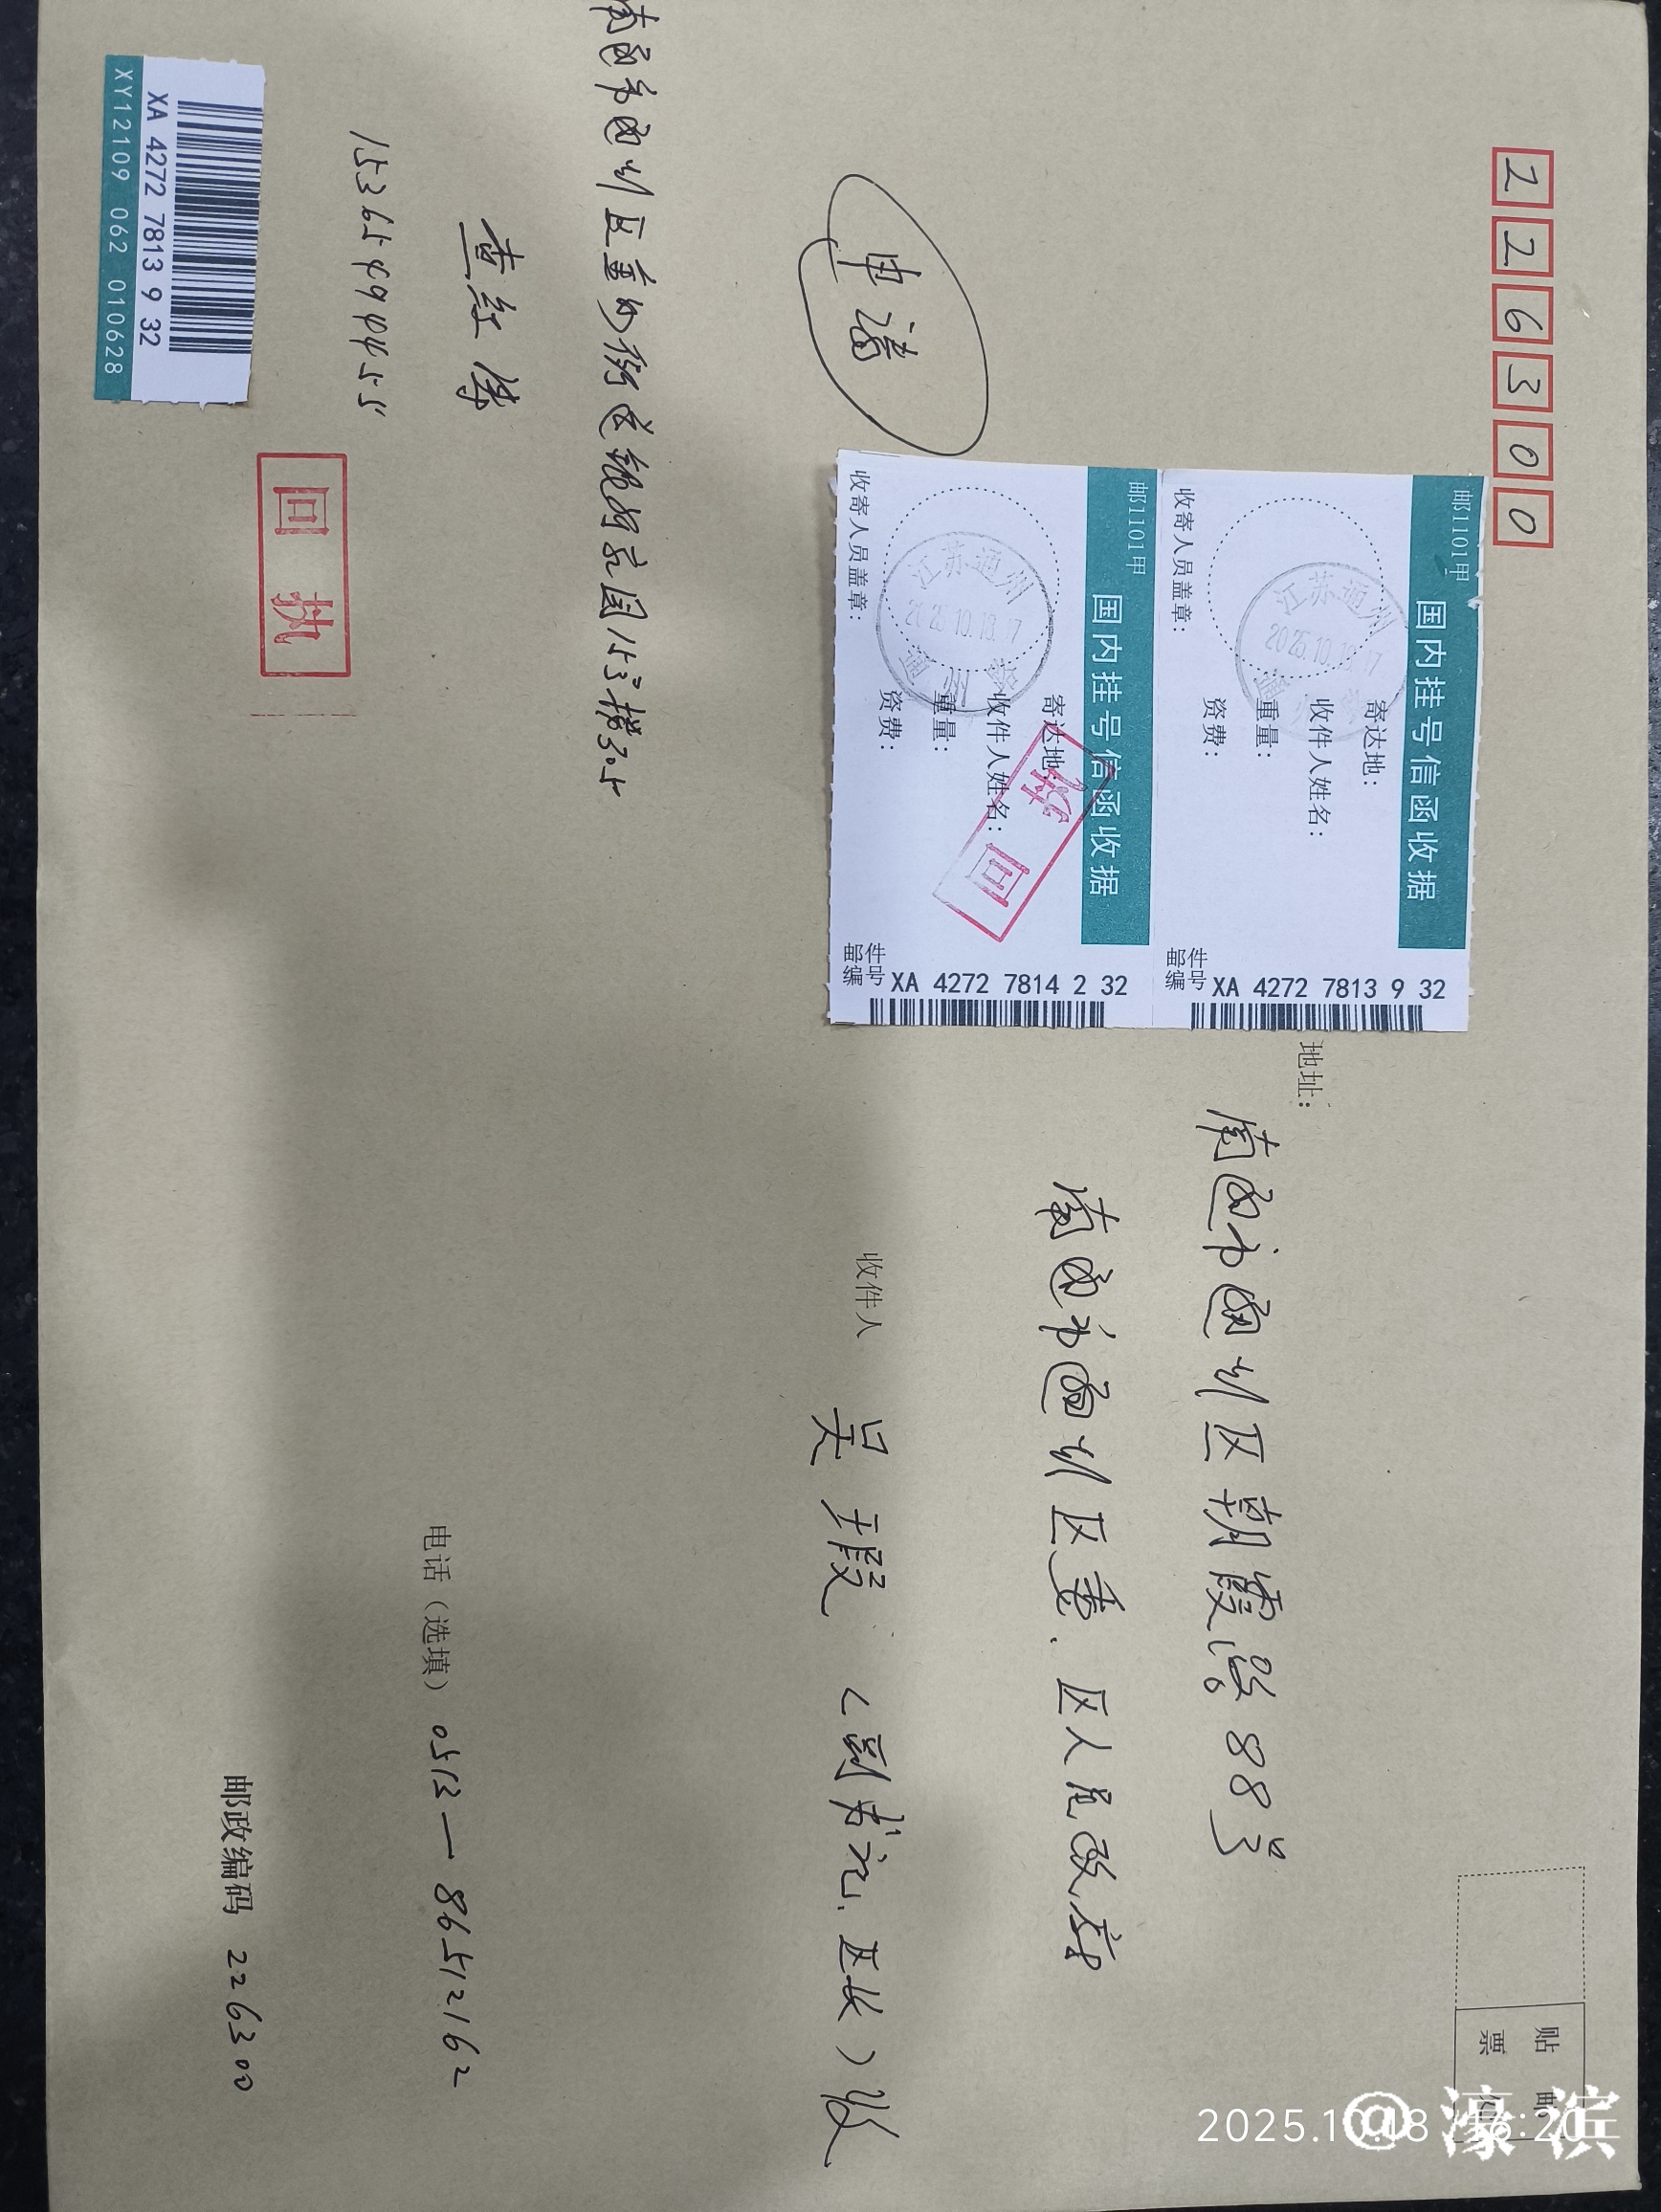 226300
邮1101甲
国内挂号信函收据
收寄人员盖章:
江苏通州
寄达地:
收件人姓名:
重量:
资费:
邮件
编号 XA 4272 7813 9 32
邮1101甲
国内挂号信函收据
收寄人员盖章:
江苏通州
寄达地:
收件人姓名:
重量:
资费:
回执
邮件
编号 XA 4272 7814 2 32
贴邮
票
地址:
南通市通州区朝霞路88号
南通市通州区委、区人民政府
申请
收件人 吴瑕 (副书记、区长)收
南通市通州区金沙街道
园153幢305
查红
15365499455
电话(选填) 0513—86512162
回执
XA 4272 7813 9 32
XY12109 062 010628
邮政编码 226300
2025.10.18 16:20
@濠滨